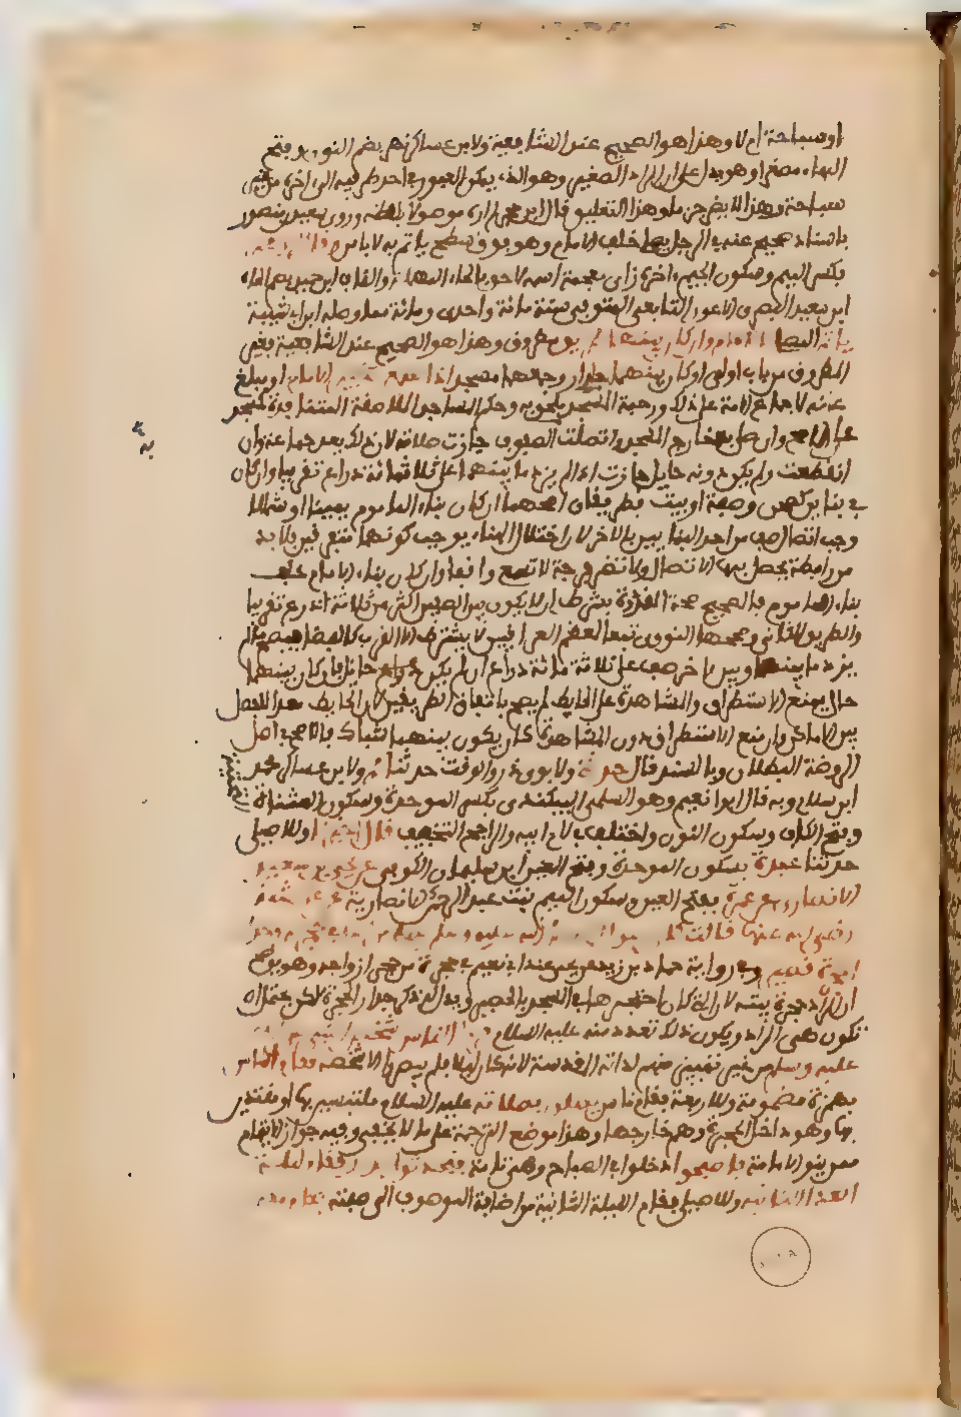 او سباحة ام لا وهذا هو الصحيح عند الشافعية ولابن عساكر نهر بضم النون وفتح
الهاء مصغرا وهو يدل على ان المراد الصغير وهو الذي يمكن العبور من احد طرفيه الى اخر من غير
سباحة وهذا لا يضر جزما وهذا التعليق قال ابن حجر لم اره موصولا بلفظه وروى سعيد بن منصور
باسناد صحيح عنه في الرجل يصلي خلف الامام وهو فوق سطح ياتم به لا باس
بكسر الميم وسكون الجيم واخره زاي معجمة اسمه لاحق بالحاء المهملة والقاف ابن حميد بضم الحاء
ابن سعيد البصري الاعور التابعي المتوفى سنة مائة او احدى ومائة مما وصله ابن ابي شيبة
ياتم المصلي بالامام وان كان بينهما طريق مطروق وهذا هو الصحيح عند الشافعية وغير
المطروق من باب اولى او كان بينهما جدار وجمعهما مسجد اذا سمع تكبير الامام او مبلغ
عنه لاجماع الامة على ذلك ورحبة المسجد وحكم المساجد المتلاصقة المتنافذة كمسجد
على الاصح وان صلى به خارج المسجد واتصلت الصفوف جازت صلاته لان ذلك يعد جماعة وان
انقطعت ولم يكن دونه حايل جازت اذا لم يزد ما بينهما على ثلاثمائة ذراع تقريبا وان كان
في بناءين كصحن وصفة او بيت فطريقان اصحهما ان كان بناء الماموم يمينا او شمالا
وجب اتصال صف من احد البناءين بالاخر لان اختلاف البناء يوجب كونهما متفرقين فلا بد
من رابطة يحصل بها الاتصال ولا تضر فرجة لا تسع واقفا وان كان بناء الامام خلف
بناء الماموم فالصحيح صحة القدوة بشرط ان لا يكون بين الصفين اكثر من ثلاثة اذرع تقريبا
والطريق الثاني وصححها النووي تبعا لمعظم العراقيين لا يشترط الا القرب كالفضا فيصح ما لم
يزد ما بينه وبين اخر صف على ثلاثمائة ذراع ان لم يكن حايل فان كان بينهما
حايل يمنع الاستطراق والمشاهدة على الحايط لم يصح باتفاق الطريقين لان الحايط معد للفصل
بين الاماكن وان منع الاستطراق دون المشاهدة كان يكون بينهما شباك فالاصح في اصل
الروضة البطلان وبالسند قال حدثنا ولابوي ذر والوقت حدثني ولابن عساكر محمد
ابن سلام وبه قال ابو نعيم وهو السلمي البيكندي بكسر الموحدة وسكون المثناة
وفتح الكاف وسكون النون واختلف في لام ابيه والراجح التخفيف قال اخبرنا وللاصيلي
حدثنا عبدة بسكون الموحدة وفتح العين ابن سليمان الكوفي عن يحيى بن سعيد
الانصاري عن عمرة بفتح العين وسكون الميم بنت عبد الرحمن الانصارية عن عائشة
رضي الله عنها قالت كان رسول الله صلى الله عليه وسلم يصلي من الليل في حجرته وجدار
الحجرة قصير وفي رواية حماد بن زيد عن يحيى عند ابي نعيم في حجرة من حجر ازواجه وهو يوضح
ان المراد حجرة بيته لا التي كان احتجرها في المسجد بالحصير ويدل له ذكر جدار الحجرة لكن يحتمل ان
تكون هي المراد ويكون ذلك تعدد منه عليه السلام فراى الناس شخص النبي صلى الله
عليه وسلم من غير تمييز منهم لذاته المقدسة لانه كان ليلا فلم يبصروا الا شخصه فقام اناس
بهمزة مضمومة وللاربعة فقام ناس يصلون بصلاته عليه السلام ملتبسين بها او مقتدين
بها وهو داخل الحجرة وهم خارجها وهذا موضع الترجمة على ما لا يخفى وفيه جواز الائتمام
بمن ينو الامامة فاصبحوا دخلوا في الصباح وهي تامة فتحدثوا بذلك فقام ليلة
الغد الثانية وللاصيلي فقام الليلة الثانية من اضافة الموصوف الى صفته فقام معه